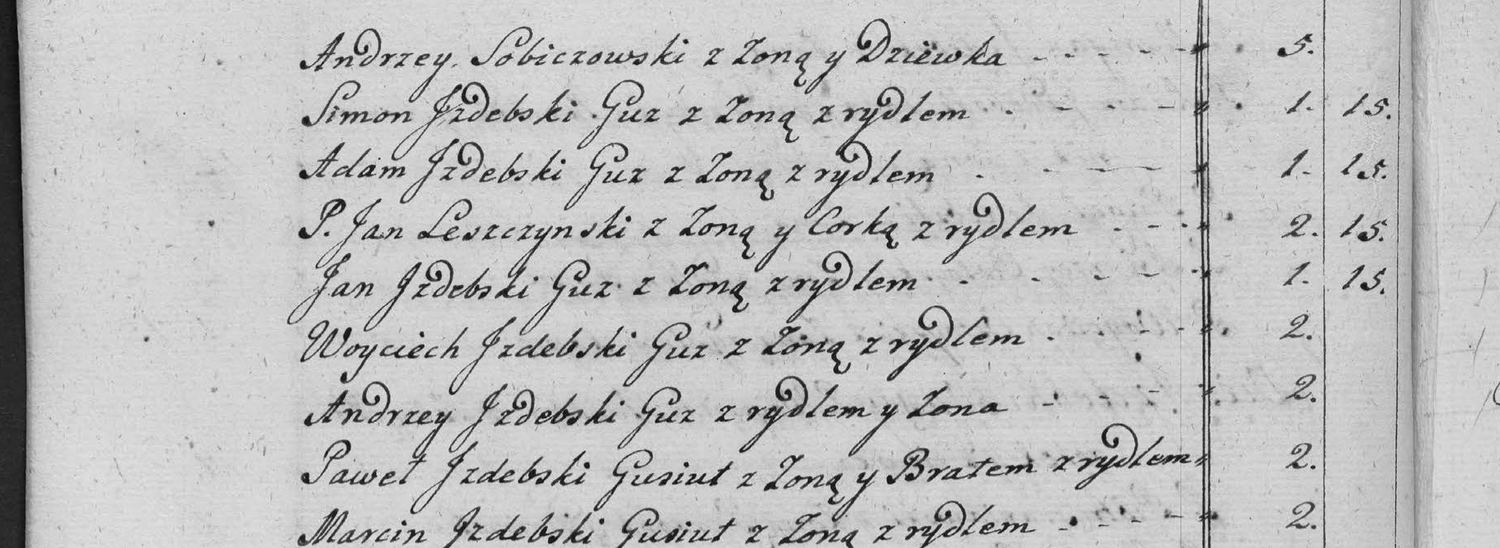 Andrzey Sobiczowski z Zoną y Dziewka - - - - 5.
Simon Jzdebski Guz z Zoną z rydlem - - - - 1. 15.
Adam Jzdebski Guz z Zoną z rydlem - - - - 1. 15.
P. Jan Leszczynski z Zoną y Corką z rydlem - - - 2. 15.
Jan Jzdebski Guz z Zoną z rydlem - - - - 1. 15.
Woyciech Jzdebski Guz z Zoną z rydlem - - - 2.
Andrzey Jzdebski Guz z rydlem y Zona - - - 2.
Paweł Jzdebski Gusiut z Zoną y Bratem z rydlem 2.
Marcin Jzdebski Gusiut z Zoną z rydlem - - - - 2.